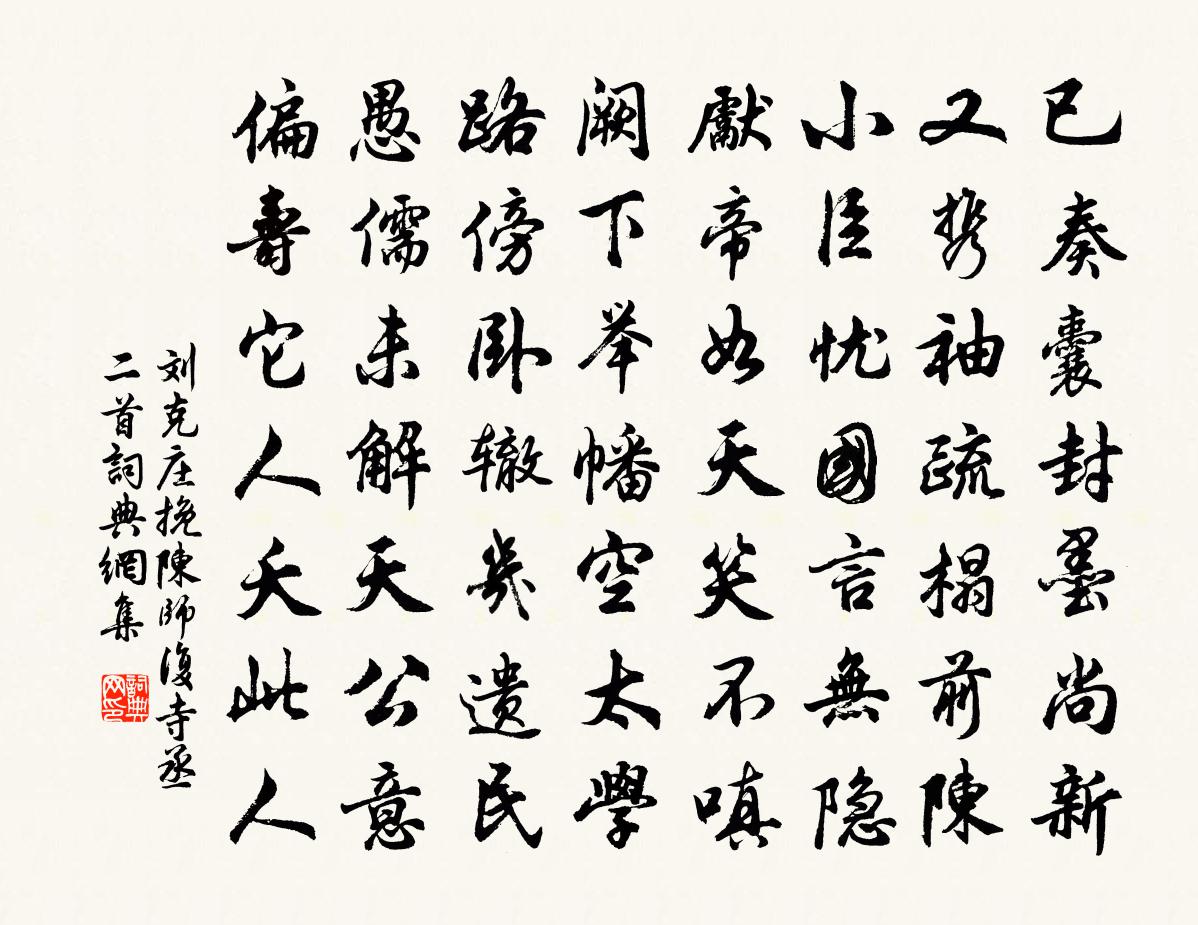 已奏囊封墨尚新
又携袖疏榻前陳
小臣忧國言無隐
獻帝如天笑不嗔
阙下举幡空太學
路傍卧辙几遗民
愚儒未解天公意
偏壽它人夭此人
刘克庄挽陳師復寺丞
二首詞典網集
詞典
网印